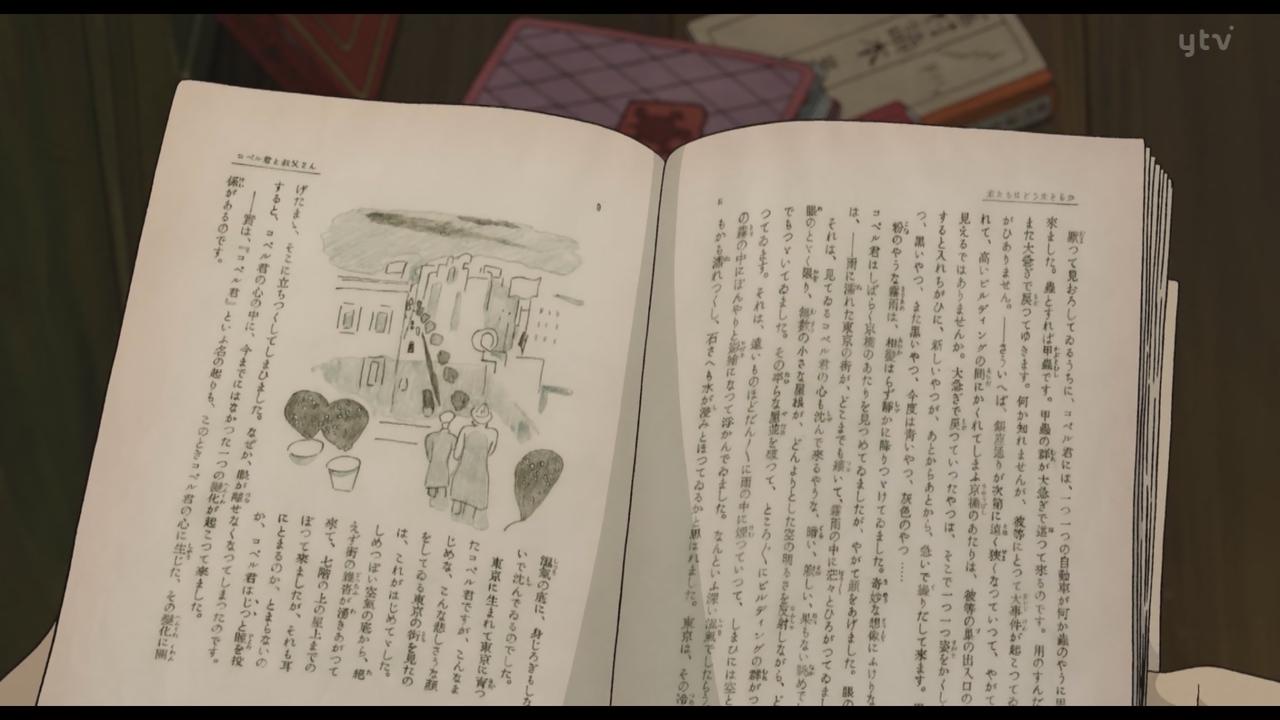 ytv
君たちはどう生きるか
厭つて見おろしてゐるうちに、コペル君には、一つ一つの自動車が何か蟲のやうに思
來ました。蟲とすれば甲蟲です。甲蟲の群が大急ぎで這つて來るのです。用のすんだ
また大急ぎで戻つてゆきます。何か知れませんが、彼等にとつて大事件が起こつてゐ
がひありません。――さういへば、銀座通りが次第に遠く狹くなつていつて、やがて
れて、高いビルディングの間にかくれてしまふ京橋のあたりは、彼等の巣の出入口の
見えるではありませんか。大急ぎで戻つていつたやつは、そこで一つ一つ姿をかくし
すると入れちがひに、新しいやつが、あとからあとから、急いで繰りだして來ます。
つ、黒いやつ、また黒いやつ、今度は青いやつ、灰色のやつ……
粉のやうな霧雨は、相變はらず靜かに降りつゞけてゐました。奇妙な想像にふけりな
コペル君はしばらく京橋のあたりを見つめてゐましたが、やがて顔をあげました。眼の
は、――雨に濡れた東京の街が、どこまでも續いて、霧雨の中に茫々とひろがつてゐまし
それは、見てゐるコペル君の心も沈んで來るやうな、暗い、寂しい、果もない眺めで
眼のとゞく限り、無數の小さな屋根が、どんよりとした空の明るさを反射しながら、ど
でもつゞいてゐました。その平らな屋並を破つて、ところ〴〵にビルディングの群がつ
つてゐます。それは、遠いものほどだん〳〵に雨の中に煙つていつて、しまひには空と
の霧の中にぼんやりと影繪になつて浮かんでゐました。なんといふ深い濕氣でしたらう
もかも濡れつくし、石さへも水が浸みとほつてゐるかと思はれました。東京は、その冷
コペル君と叔父さん
濕氣の底に、身じろぎもしな
いで沈んでゐるのでした。
東京に生まれて東京に育つ
たコペル君ですが、こんなま
じめな、こんな悲しさうな顔
をしてゐる東京の街を見たの
は、これがはじめてゞした。
しめつぽい空氣の底から、絶
えず街の雜沓が湧きあがつて
來て、七階の上の屋上までの
ぼつて來ましたが、それも耳
にとまるのか、とまらないの
か、コペル君はじつと眼を投
げたまゝ、そこに立ちつくしてしまひました。なぜか、眼が離せなくなつてしまつたのです。
すると、コペル君の心の中に、今までにはなかつた一つの變化が起こつて來ました。
――實は、『コペル君』といふ名の起りも、このときコペル君の心に生じた、その變化に關
係があるのです。